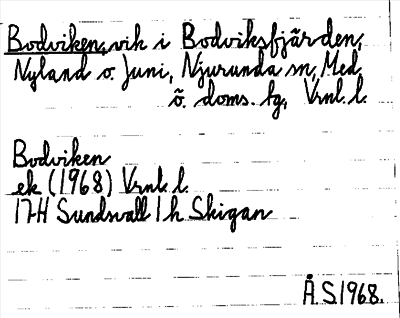 Bodviken, vik i Bodviksfjärden,
Nyland o. Juni, Njurunda sn, Med.
ö. doms. lg, Vrnl. l.
Bodviken
ek (1968) Vrnl. l.
17H Sundsvall 1h Skigan
Å.S.1968.